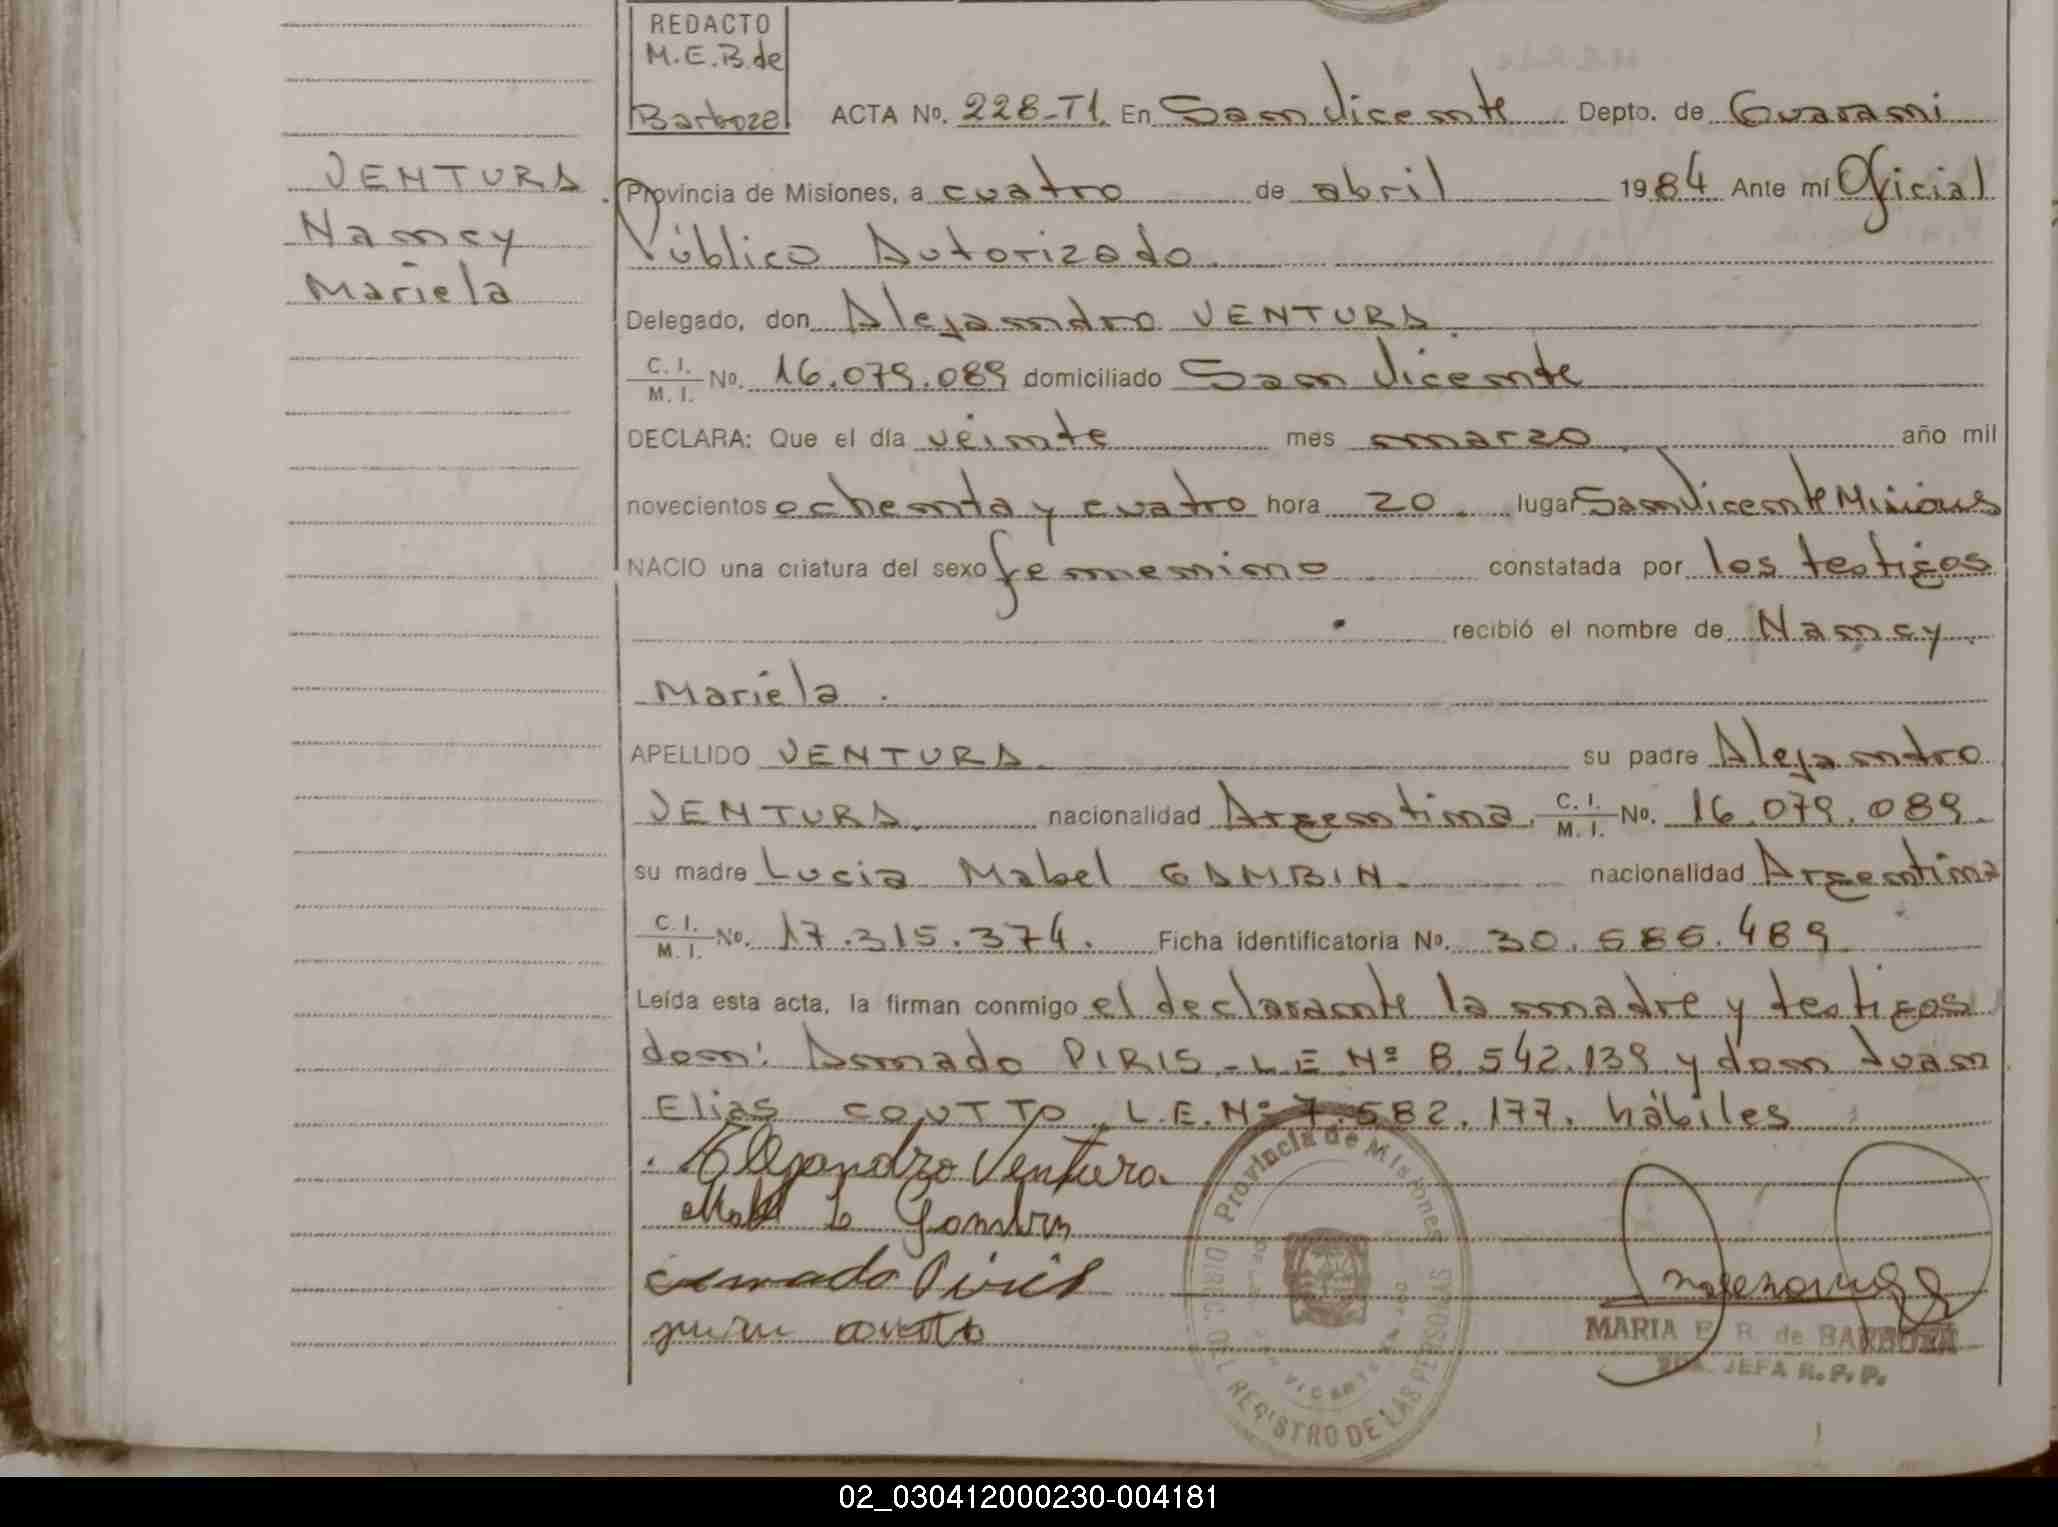 REDACTO
M.E.B. de
Barboza
ACTA No. 228-T1. En San Vicente Depto. de Guarani
VENTURA
Nancy
Mariela
Provincia de Misiones, a cuatro de abril 1984 Ante mí Oficial
Público Autorizado
Delegado, don Alejandro VENTURA
C. I. / M. I. No. 16.079.089 domiciliado San Vicente
DECLARA: Que el día veinte mes marzo año mil
novecientos ochenta y cuatro hora 20. lugar San Vicente Misiones
NACIO una criatura del sexo femenino constatada por los testigos
recibió el nombre de Nancy
Mariela.
APELLIDO VENTURA su padre Alejandro
VENTURA nacionalidad Argentina. C. I. / M. I. No. 16.079.089.
su madre Lucia Mabel GAMBIN. nacionalidad Argentina
C. I. / M. I. No. 17.315.374. Ficha identificatoria No. 30.686.489
Leída esta acta, la firman conmigo el declarante la madre y testigos
don: Amado PIRIS - L.E. Nº 8.542.139 y don Juan
Elias COUTTO L.E. Nº 7.582.177. hábiles
Alejandro Ventura
Mabel L Gambin
Amado Piris
Provincia de Misiones
DIREC. DEL REGISTRO DE LAS PERSONAS
MARIA E. B. de BARBOZA
JEFA R. P. P.
02_030412000230-004181